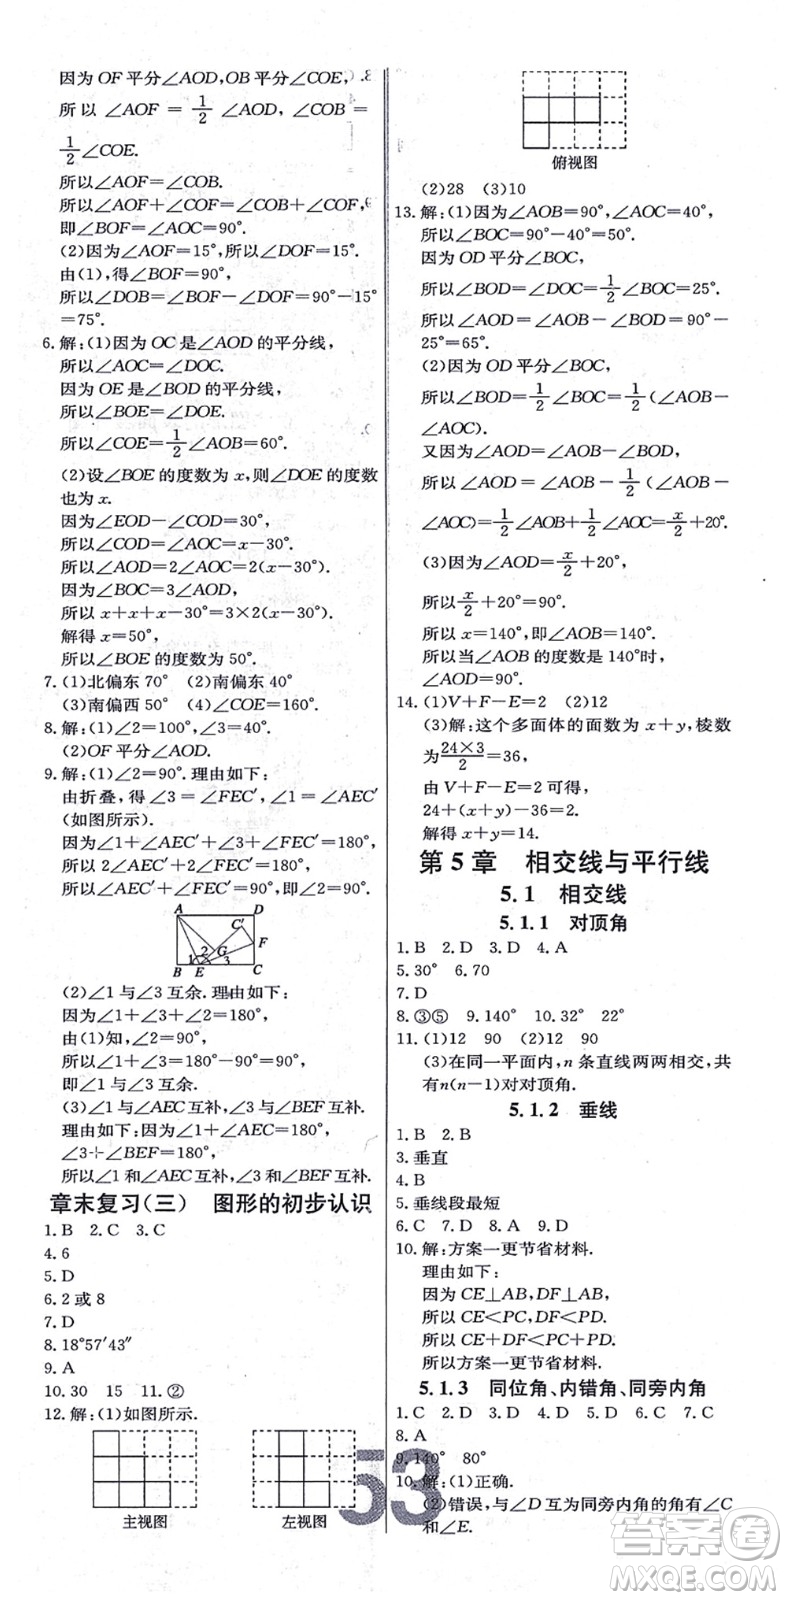 因为OF平分∠AOD,OB平分∠COE,
所以∠AOF=1/2∠AOD,∠COB=
1/2∠COE.
所以∠AOF=∠COB.
所以∠AOF+∠COF=∠COB+∠COF,
即∠BOF=∠AOC=90°.
(2)因为∠AOF=15°,所以∠DOF=15°.
由(1),得∠BOF=90°,
所以∠DOB=∠BOF-∠DOF=90°-15°
=75°.
6.解:(1)因为OC是∠AOD的平分线,
所以∠AOC=∠DOC.
因为OE是∠BOD的平分线,
所以∠BOE=∠DOE.
所以∠COE=1/2∠AOB=60°.
(2)设∠BOE的度数为x,则∠DOE的度数
也为x.
因为∠EOD-∠COD=30°,
所以∠COD=∠AOC=x-30°.
所以∠AOD=2∠AOC=2(x-30°).
因为∠BOC=3∠AOD,
所以x+x+x-30°=3×2(x-30°).
解得x=50°,
所以∠BOE的度数为50°.
7.(1)北偏东70° (2)南偏东40°
(3)南偏西50° (4)∠COE=160°.
8.解:(1)∠2=100°,∠3=40°.
(2)OF平分∠AOD.
9.解:(1)∠2=90°.理由如下:
由折叠,得∠3=∠FEC′,∠1=∠AEC′
(如图所示).
因为∠1+∠AEC′+∠3+∠FEC′=180°,
所以2∠AEC′+2∠FEC′=180°,
所以∠AEC′+∠FEC′=90°,即∠2=90°.
A D
C′
F
2 G
1 3
B E C
(2)∠1与∠3互余.理由如下:
因为∠1+∠3+∠2=180°,
由(1)知,∠2=90°,
所以∠1+∠3=180°-90°=90°,
即∠1与∠3互余.
(3)∠1与∠AEC互补,∠3与∠BEF互补.
理由如下:因为∠1+∠AEC=180°,
∠3+∠BEF=180°,
所以∠1和∠AEC互补,∠3和∠BEF互补.
章末复习(三) 图形的初步认识
1.B 2.C 3.C
4.6
5.D
6.2或8
7.D
8.18°57′43″
9.A
10.30 15 11.②
12.解:(1)如图所示.
主视图 左视图
俯视图
(2)28 (3)10
13.解:(1)因为∠AOB=90°,∠AOC=40°,
所以∠BOC=90°-40°=50°.
因为OD平分∠BOC,
所以∠BOD=∠DOC=1/2∠BOC=25°.
所以∠AOD=∠AOB-∠BOD=90°-
25°=65°.
(2)因为OD平分∠BOC,
所以∠BOD=1/2∠BOC=1/2(∠AOB-
∠AOC).
又因为∠AOD=∠AOB-∠BOD,
所以∠AOD=∠AOB-1/2(∠AOB-
∠AOC)=1/2∠AOB+1/2∠AOC=x/2+20°.
(3)因为∠AOD=x/2+20°,
所以x/2+20°=90°.
所以x=140°,即∠AOB=140°.
所以当∠AOB的度数是140°时,
∠AOD=∠COE=90°.
14.(1)V+F-E=2 (2)12
(3)解:这个多面体的面数为x+y,棱数
为24×3/2=36,
由V+F-E=2可得,
24+(x+y)-36=2.
解得x+y=14.
第5章 相交线与平行线
5.1 相交线
5.1.1 对顶角
1.B 2.D 3.D 4.A
5.30° 6.70
7.D
8.③⑤ 9.140° 10.32° 22°
11.(1)12 90 (2)12 90
(3)在同一平面内,n条直线两两相交,共
有n(n-1)对对顶角.
5.1.2 垂线
1.B 2.B
3.垂直
4.B
5.垂线段最短
6.C 7.D 8.A 9.D
10.解:方案一更节省材料.
理由如下:
因为CE⊥AB,DF⊥AB,
所以CE<PC,DF<PD.
所以CE+DF<PC+PD.
所以方案一更节省材料.
5.1.3 同位角、内错角、同旁内角
1.C 2.D 3.A 4.B 5.C 6.D 7.C
8.A
9.140° 80°
10.解:(1)正确.
(2)错误,与∠D互为同旁内角的角有∠C
和∠E.
53
答案圈
MXQE.COM